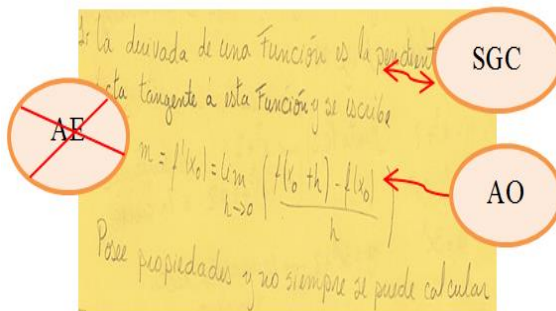 la derivada de una Función es la pendient
tangente á esta Función y se escribe
m = f'(x₀) = lim h→0 ( f(x₀ + h) - f(x₀) / h )
Posee propiedades y no siempre se puede calcular
SGC
AE
AO